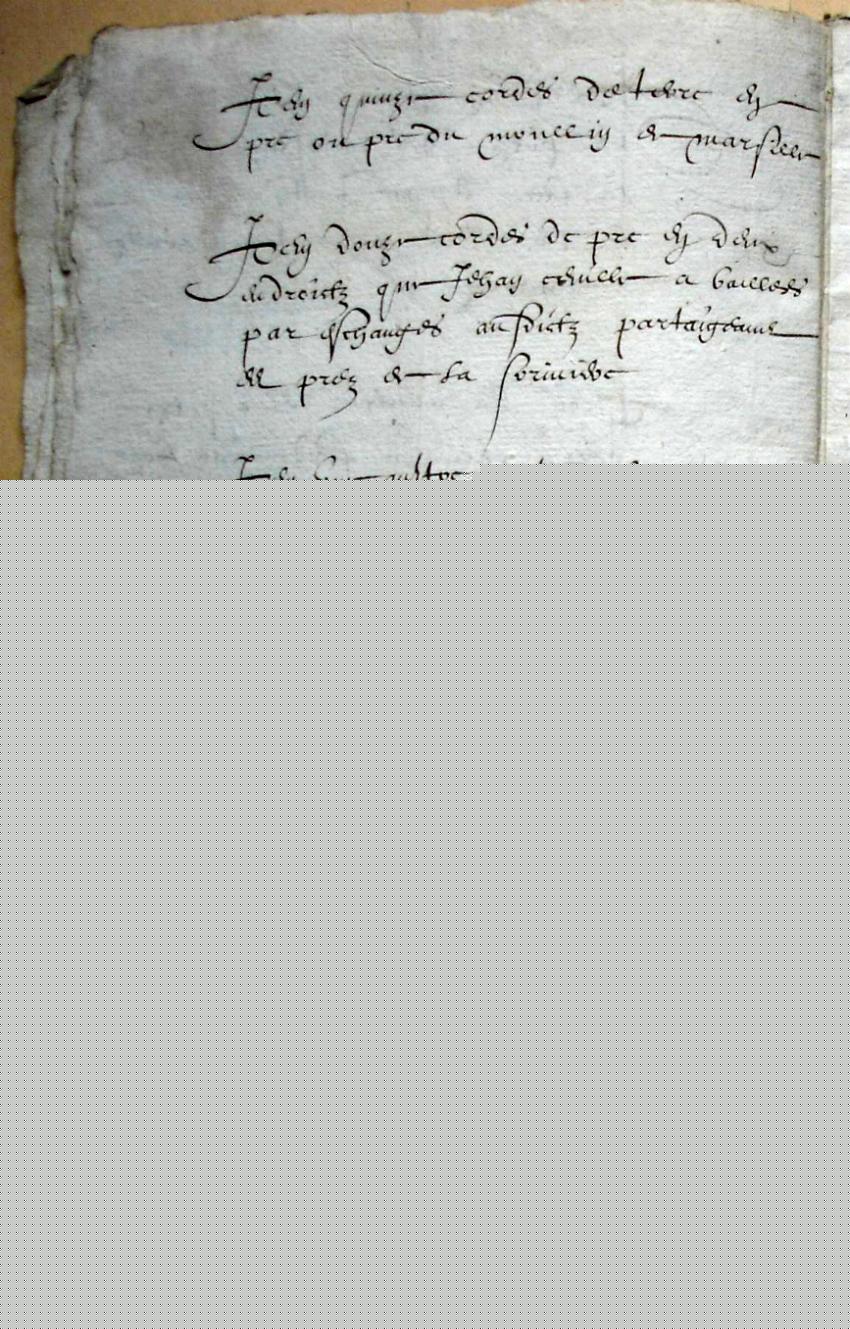 Item quinze cordes de terre en
pre ou pre du moullin de marsille
Item douze cordes de pre en deux
endroictz que Jehan a baillees
par eschanges ausdictz partaigeans
es prez de la
Item